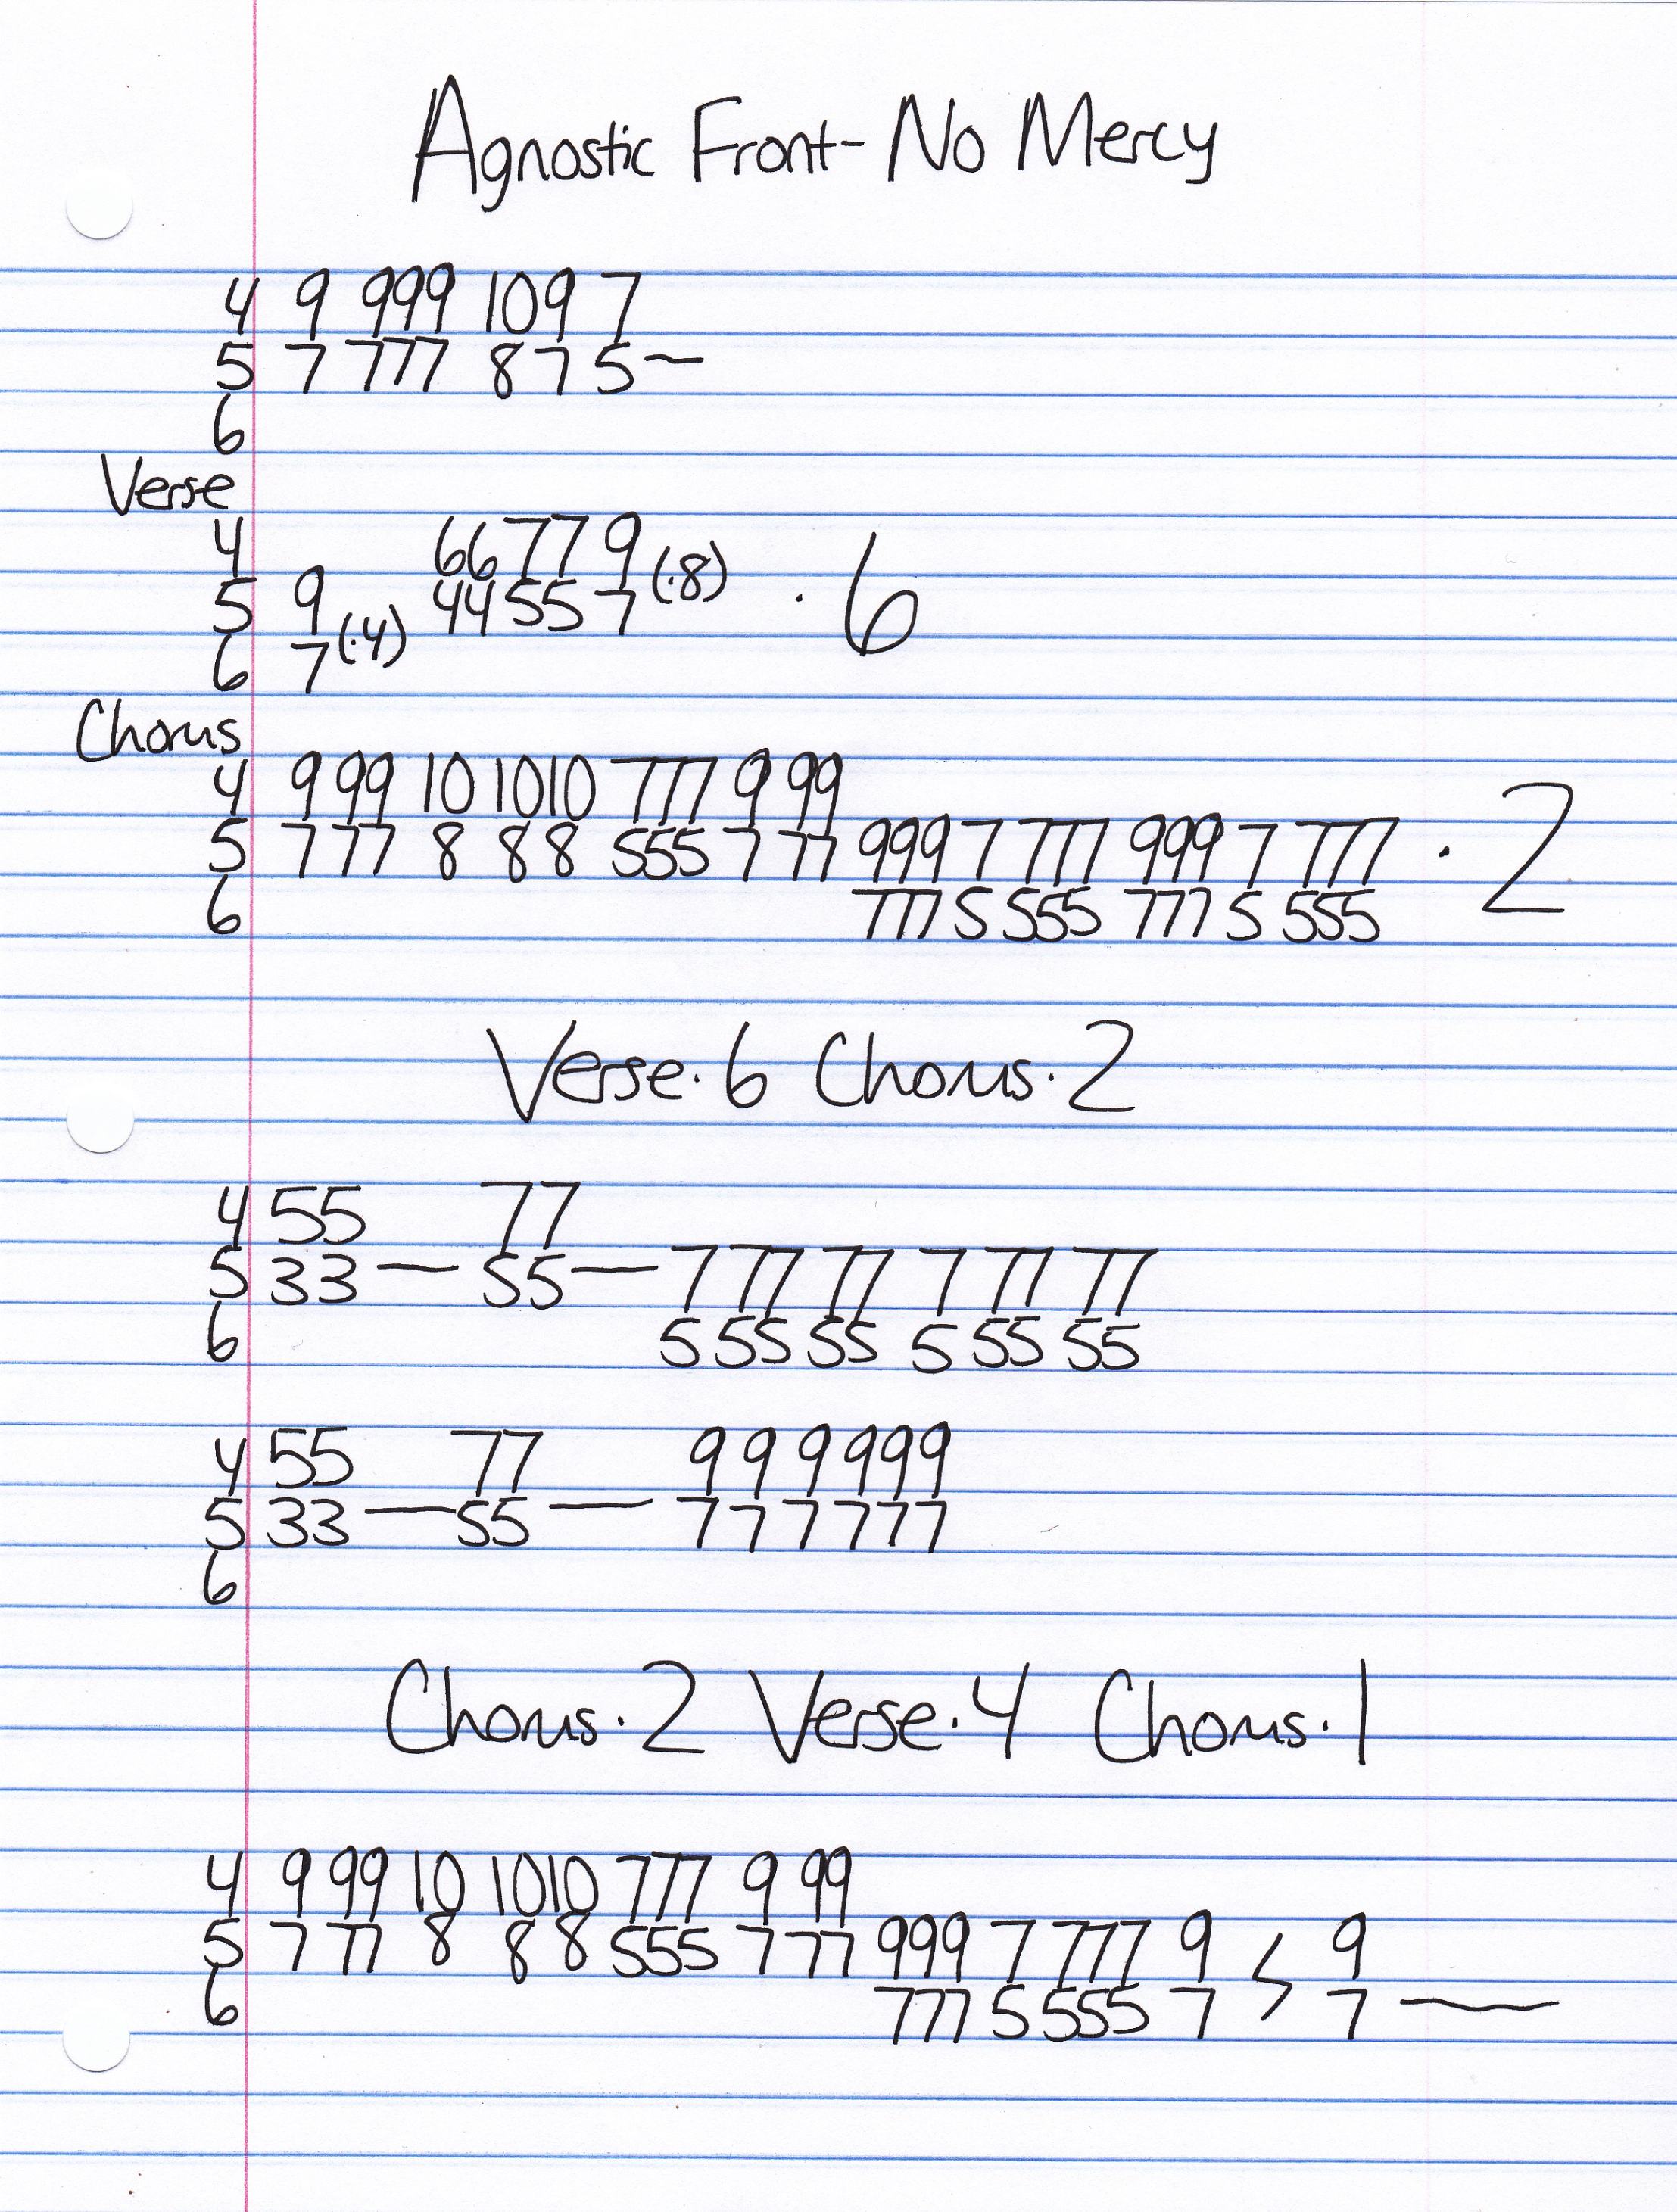 Agnostic Front- No Mercy
4 9 999 109 7
5 7 777 8 7 5—
6
Verse
4 66 77 9
5 9 44 55 7 (·8) · 6
6 7 (·4)
Chorus
4 9 99 10 1010 777 9 99
5 7 77 8 8 8 555 7 77 999 7 777 999 7 777 · 2
6 777 5 555 777 5 555
Verse·6 Chorus·2
4 55 77
5 33 — 55 — 7 77 77 7 77 77
6 5 55 55 5 55 55
4 55 77 9 9 9 9 9 9
5 33 — 55 — 7 7 7 7 7 7
6
Chorus·2 Verse·4 Chorus·1
4 9 99 10 1010 777 9 99
5 7 77 8 8 8 555 7 77 999 7 777 9 9
6 777 5 555 7 7 —